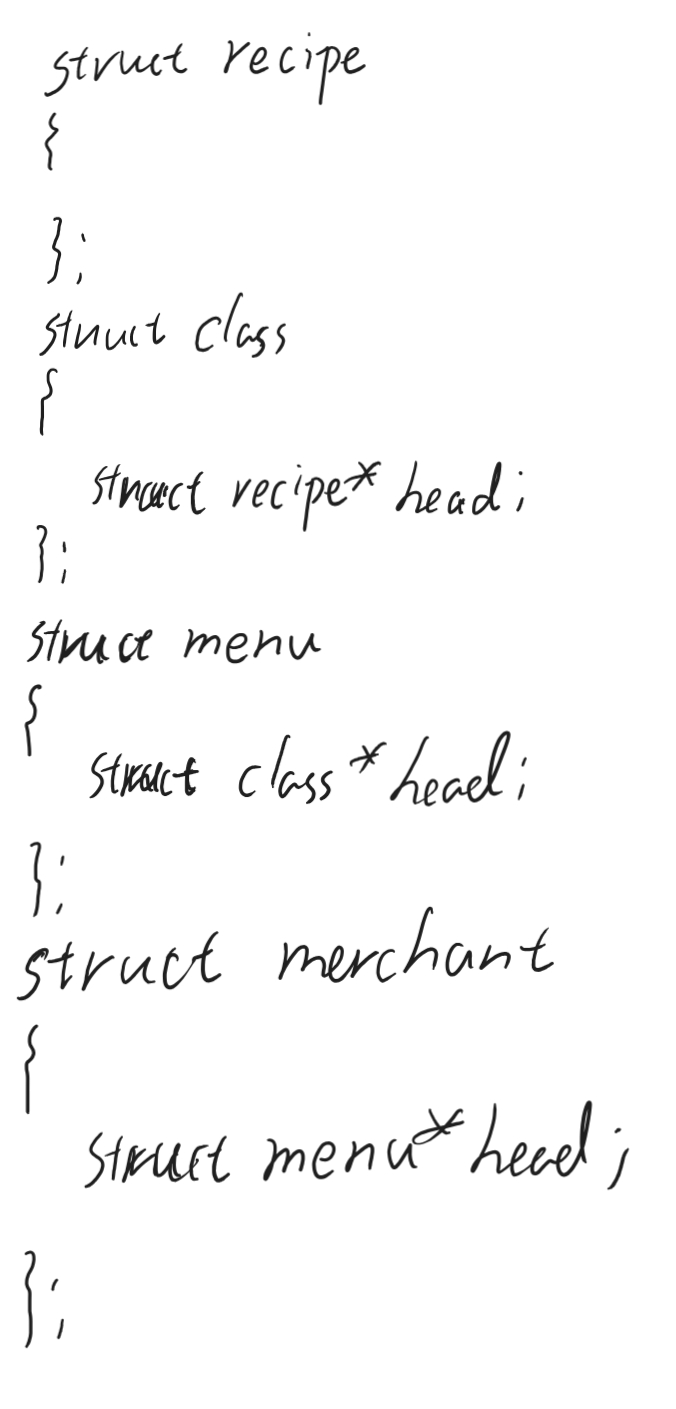 struct recipe
{
};
struct class
{
struct recipe* head;
};
struct menu
{
struct class* head;
};
struct merchant
{
struct menu* head;
};